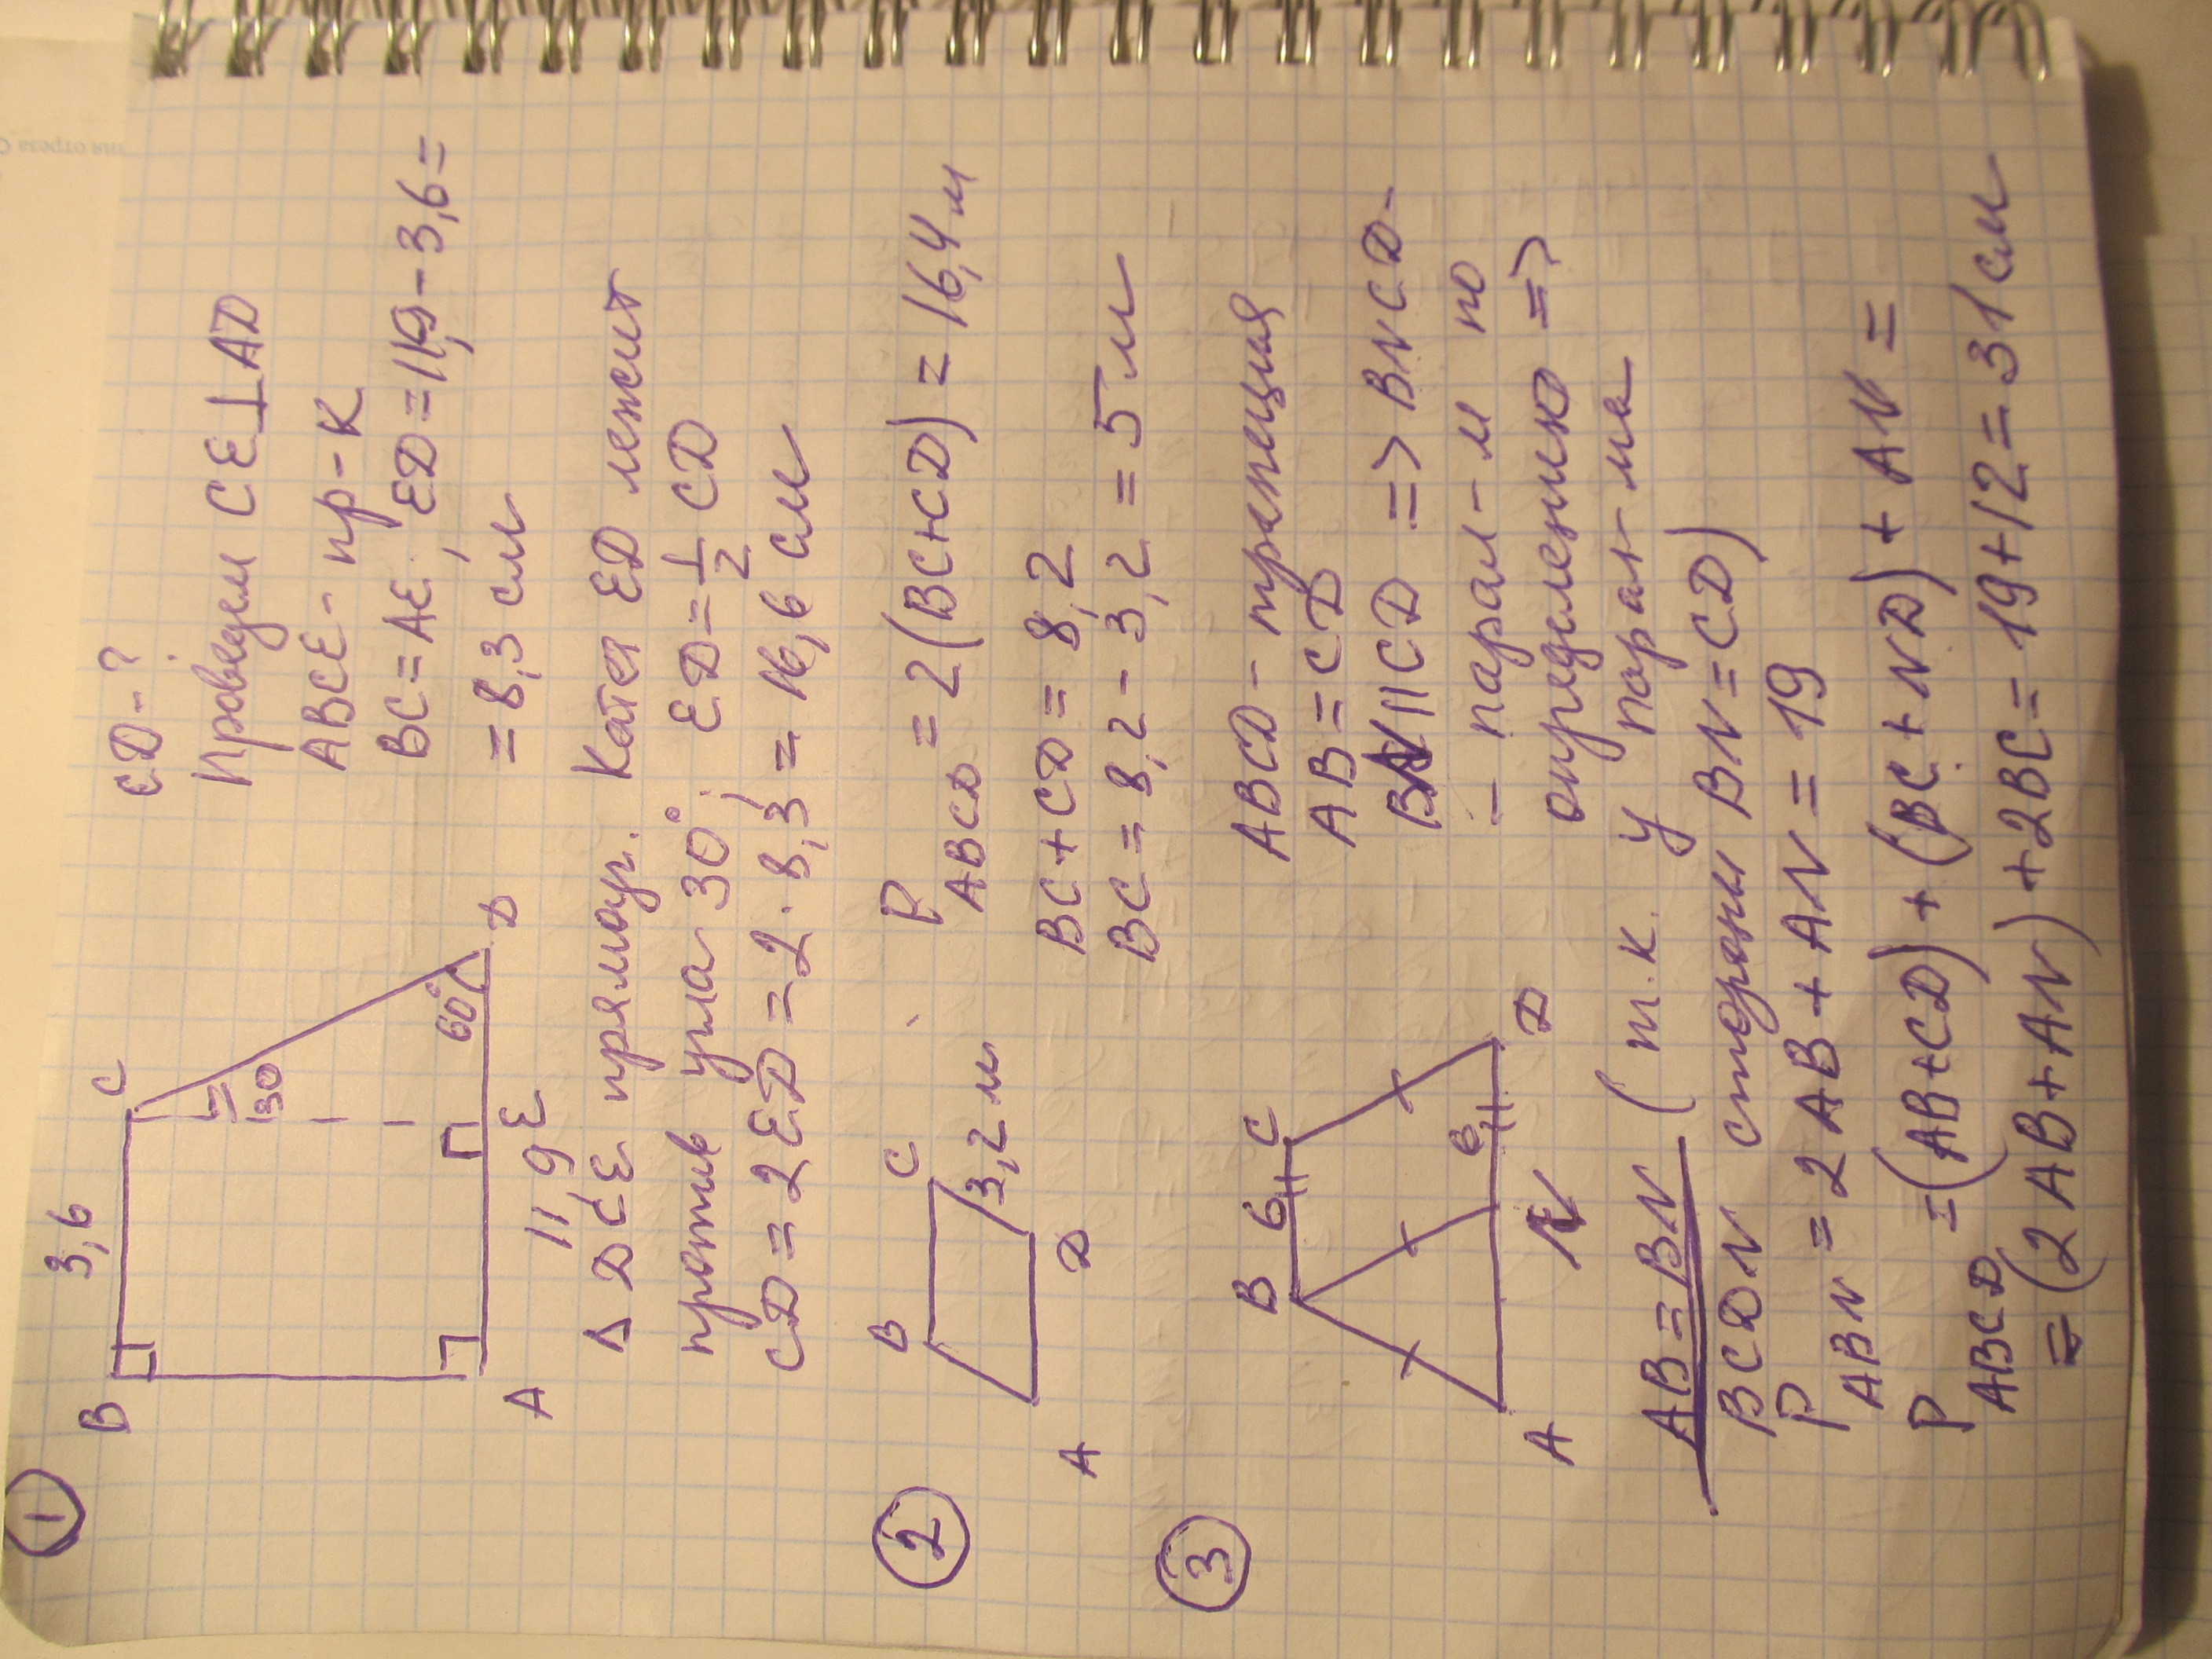 ①
B 3,6 C
30
60°
A 11,9 E D
CD-?
Проведем CE⊥AD
ABCE - пр-к
BC=AE; ED=11,9-3,6=
=8,3 см
Δ DCE прямоуг. Катет ED лежит
против угла 30°; ED=1/2 CD
CD=2ED=2·8,3=16,6 см
②
B C
3,2 м
A D
P ABCD =2(BC+CD)=16,4 м
BC+CD=8,2
BC=8,2-3,2=5 м
③
B 6 C
6
A N D
ABCD - трапеция
AB=CD
BN||CD => BNCD-
- парал-м по
определению =>
AB=BN (т.к. у парал-ма
BCDN стороны BN=CD)
P ABN =2AB+AN=19
P ABCD =(AB+CD)+(BC+ND)+AN=
=(2AB+AN)+2BC=19+12=31 см